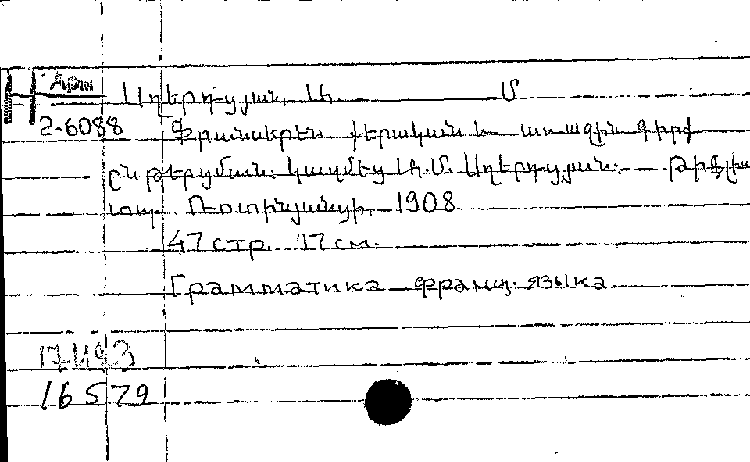 Н Арм
Աղերդյան, Ա. Մ
2-6088 Ֆրանսերէն քերական և առաջին գիրք
ընթերցման. կազմեց Ա. Մ. Աղերդյան. — Թիֆլիս
տպ. 1908
47 стр. 17 см.
Грамматика франц. языка
16579